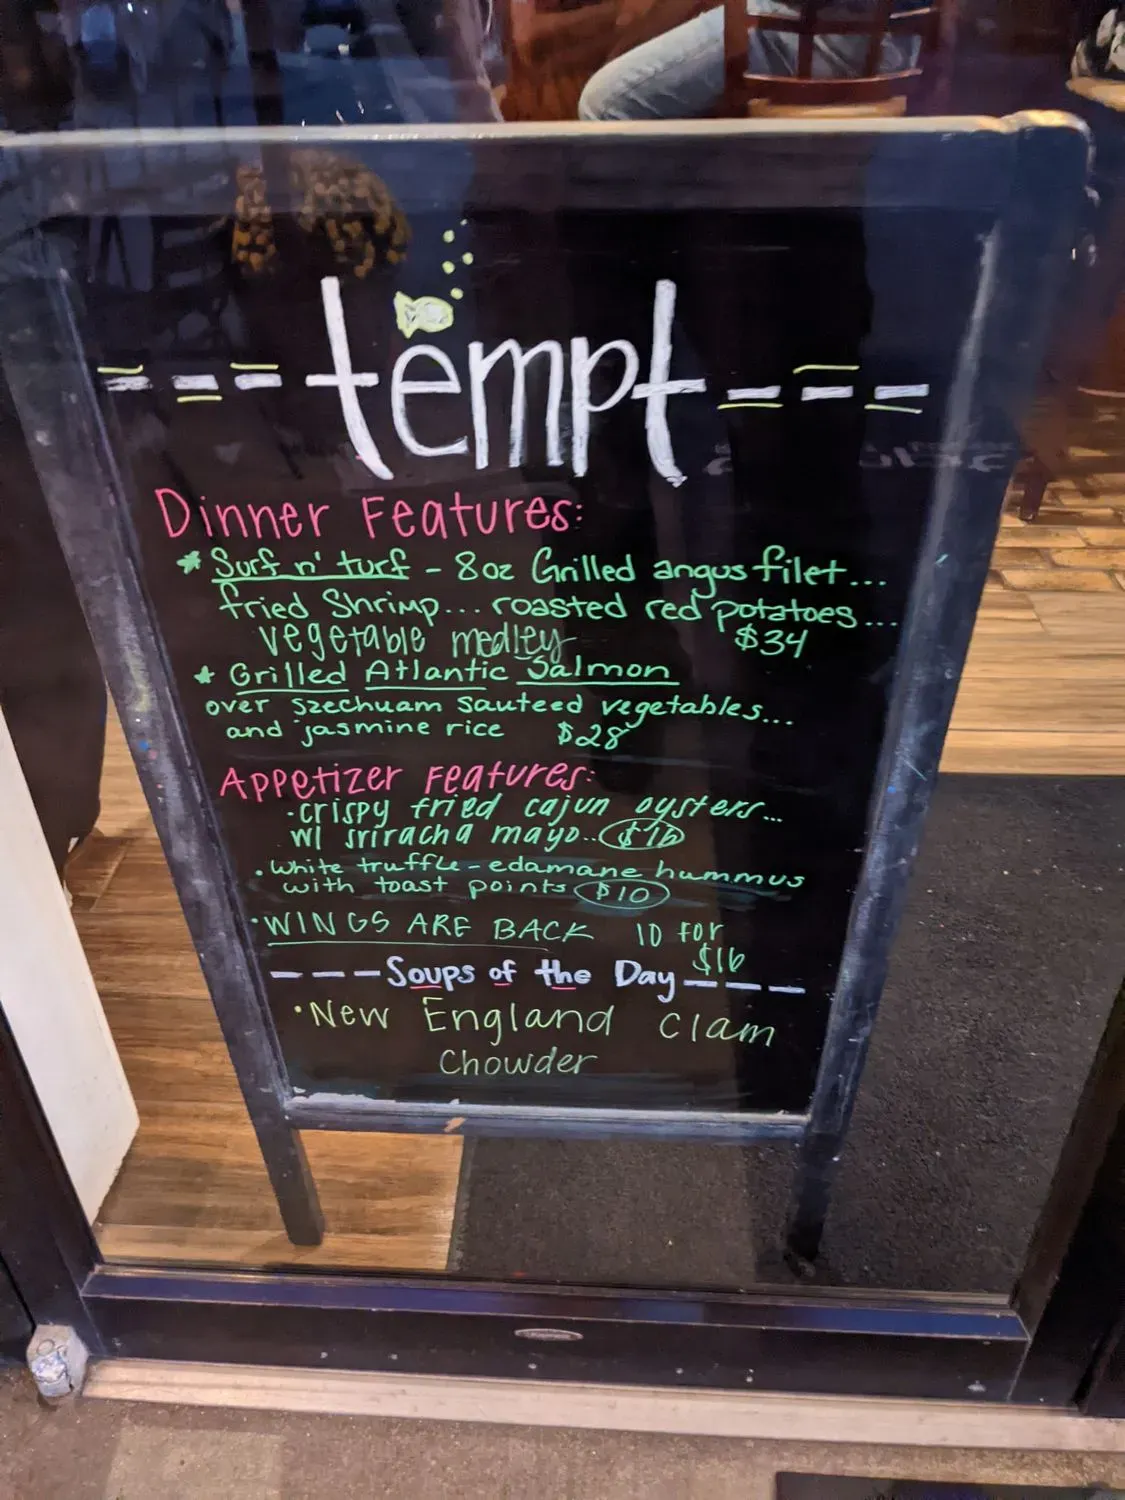 tempt
Dinner Features:
* Surf n' turf - 8oz Grilled angus filet...
fried Shrimp... roasted red potatoes...
vegetable medley $34
* Grilled Atlantic Salmon
over szechuam sauteed vegetables...
and jasmine rice $28
Appetizer Features:
· crispy fried cajun oysters...
w/ sriracha mayo... $16
· White truffle - edamane hummus
with toast points $10
· WINGS ARE BACK 10 for
$16
--- Soups of the Day ---
· New England Clam
Chowder